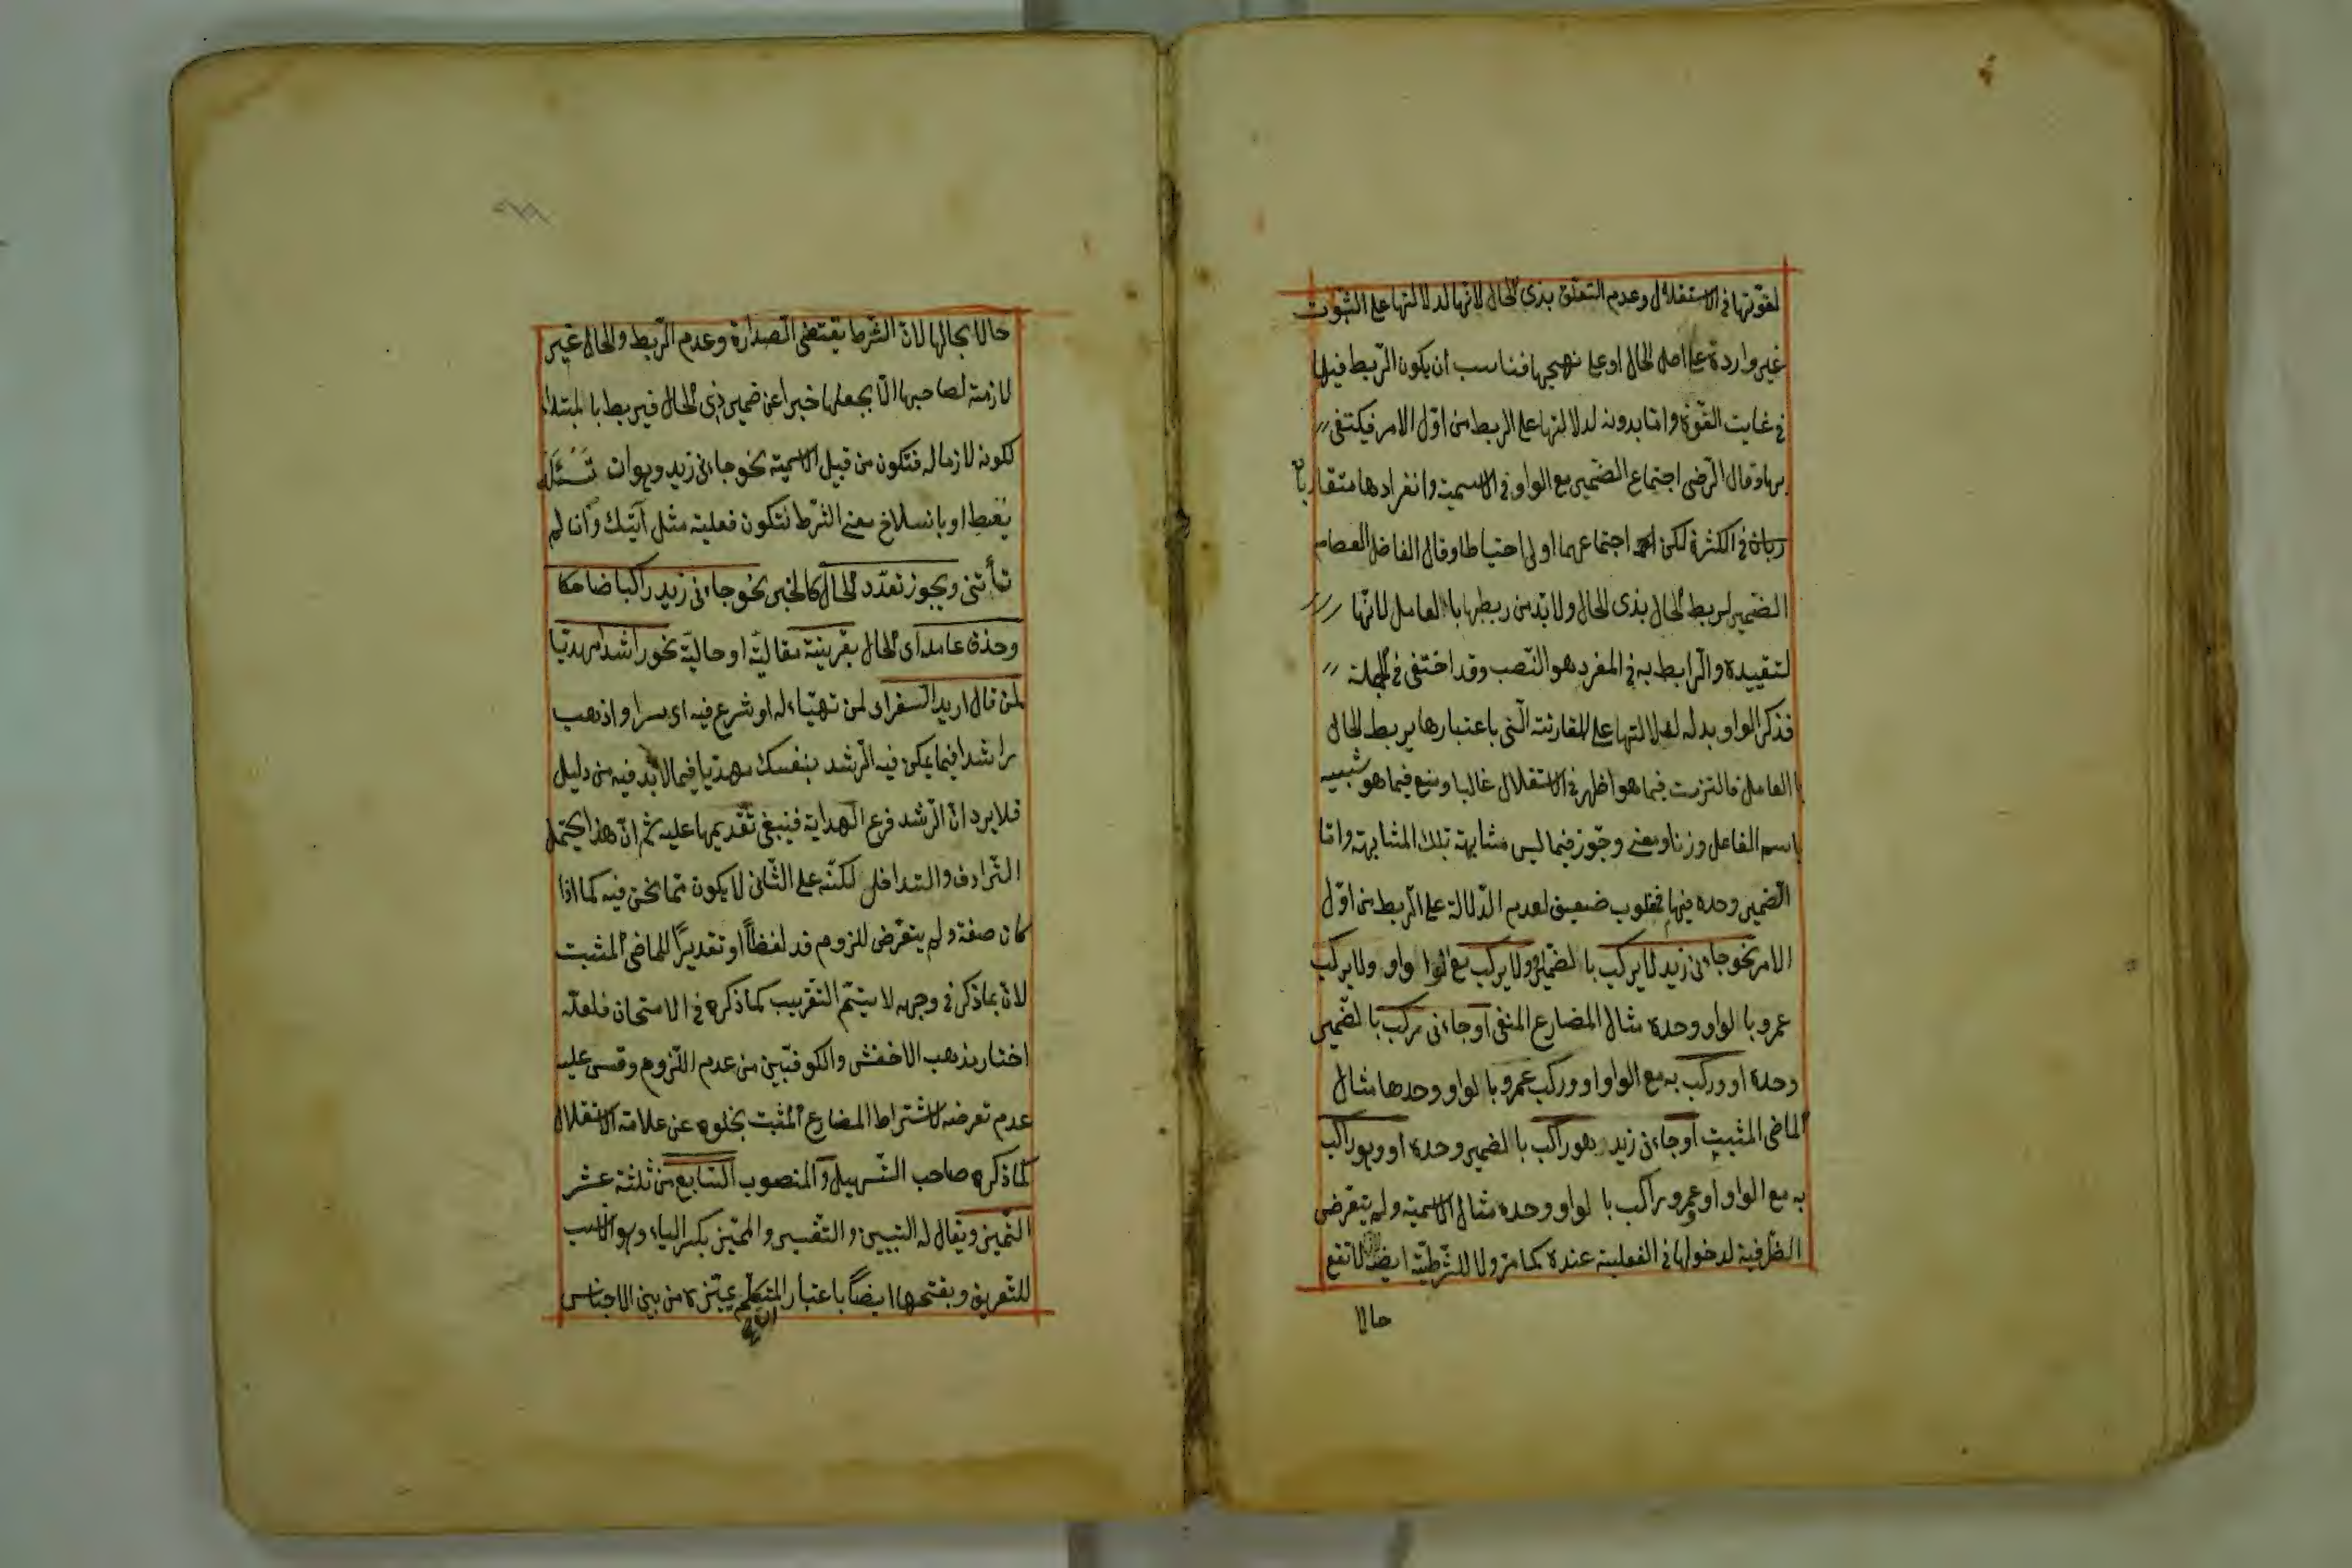 لقوّتها فى الاستقلال وعدم التعلّق بذى الحال لانّها لدلالتها على الثبوت
غير واردة على اصل الحال او على نهجها فناسب ان يكون الرّبط فيها
فى غايت القوّة وامّا بدونه لدلالتها على الربط من اوّل الامر فيكتفى
بها وقال الرّضى اجتماع الضّمير مع الواو فى الاسمية وانفرادها متقاربا
ربان فى الكثرة لكن اجتماعهما اولى احتياطا وقال الفاضل العصام
الضّمير لربط الحال بذى الحال ولا بدّ من ربطها بالعامل لانّها
لتقييده والرّابط به فى المفرد هو النّصب وقد اختفى فى الجملة
فذكر الواو بدله لدلالتها على المقارنة الّتى باعتبارها يربط الحال
بالعامل فالتزمت فيما هو اظهر فى الاستقلال غالبا ومنع فيما هو شبيه
باسم الفاعل وزنا ومعنى وجوّز فيما ليس مشابهته تلك المشابهة وامّا
الضّمير وحده فيها فمغلوب ضعيف لعدم الدّلالة على الرّبط من اوّل
الامر نحو جاءنى زيد لا يركب بالضمير ولا يركب مع الواو ولا يركب
عمرو بالواو وحده مثال المضارع المنفى او جاءنى ركب بالضّمير
وحده او وركب به مع الواو او وركب عمرو بالواو وحدها مثال
الماضى المثبت او جاءنى زيد هو راكب بالضمير وحده او وهو راكب
به مع الواو او عمرو راكب بالواو وحده مثال الاسمية ولم يتعرّض
الظّرفية لدخولها فى الفعلية عنده كما مرّ ولا للشّرطيّة ايضا لا تقع
حالا
حالا بحالها لانّ الشّرط يقتضى الصدارة وعدم الرّبط والحال غير
لازمة لصاحبها الّا بجعلها خبرا عن ضمير ذى الحال فيربط بالمبتداء
لكونه لازما له فتكون من قبيل الاسمية نحو جاءنى زيد وهو ان تسئله
يعط او بانسلاخ معنى الشّرط فتكون فعلية مثل آتيك وان لم
تأتنى ويجوز تعدّد الحال كالخبر نحو جاءنى زيد راكبا ضاحكا
وحذف عامله اى الحال بقرينة مقاليّة او حاليّة نحو راشدا مهديّا
لمن قال اريد السّفر اى لمن تهيّاء له او شرع فيه اى سرا واذهب
راشدا فيما يمكن فيه الرّشد بنفسك مهديّا فيما لا بدّ فيه من دليل
فلا يرد انّ الرّشد فرع الهداية فينبغى تقديمها عليه ثم انّ هذا يحتمل
التّرادف والتداخل لكنّه على الثّانى لا يكون ممّا نحن فيه كما اذا
كان صفة ولم يتعرّض للزوم قد لفظاً او تقديرًا للماضى المثبت
لانّ ما ذكر فى وجهه لا يتمّ التّقريب كما ذكره فى الامتحان فلعلّه
اختار مذهب الاخفش والكوفيّين من عدم اللّزوم وقس عليه
عدم تعرضه لاشتراط المضارع المثبت بخلوه عن علامة الاستقلال
كما ذكره صاحب التّسهيل والمنصوب السّابع من ثلثة عشر
التّميز ويقال له التبيين والتّفسير والمميّز بكسر الياء وهو الانسب
للتّعريف وبفتحها ايضاً باعتبار المتكلّم يميّزه من بين الاجناس